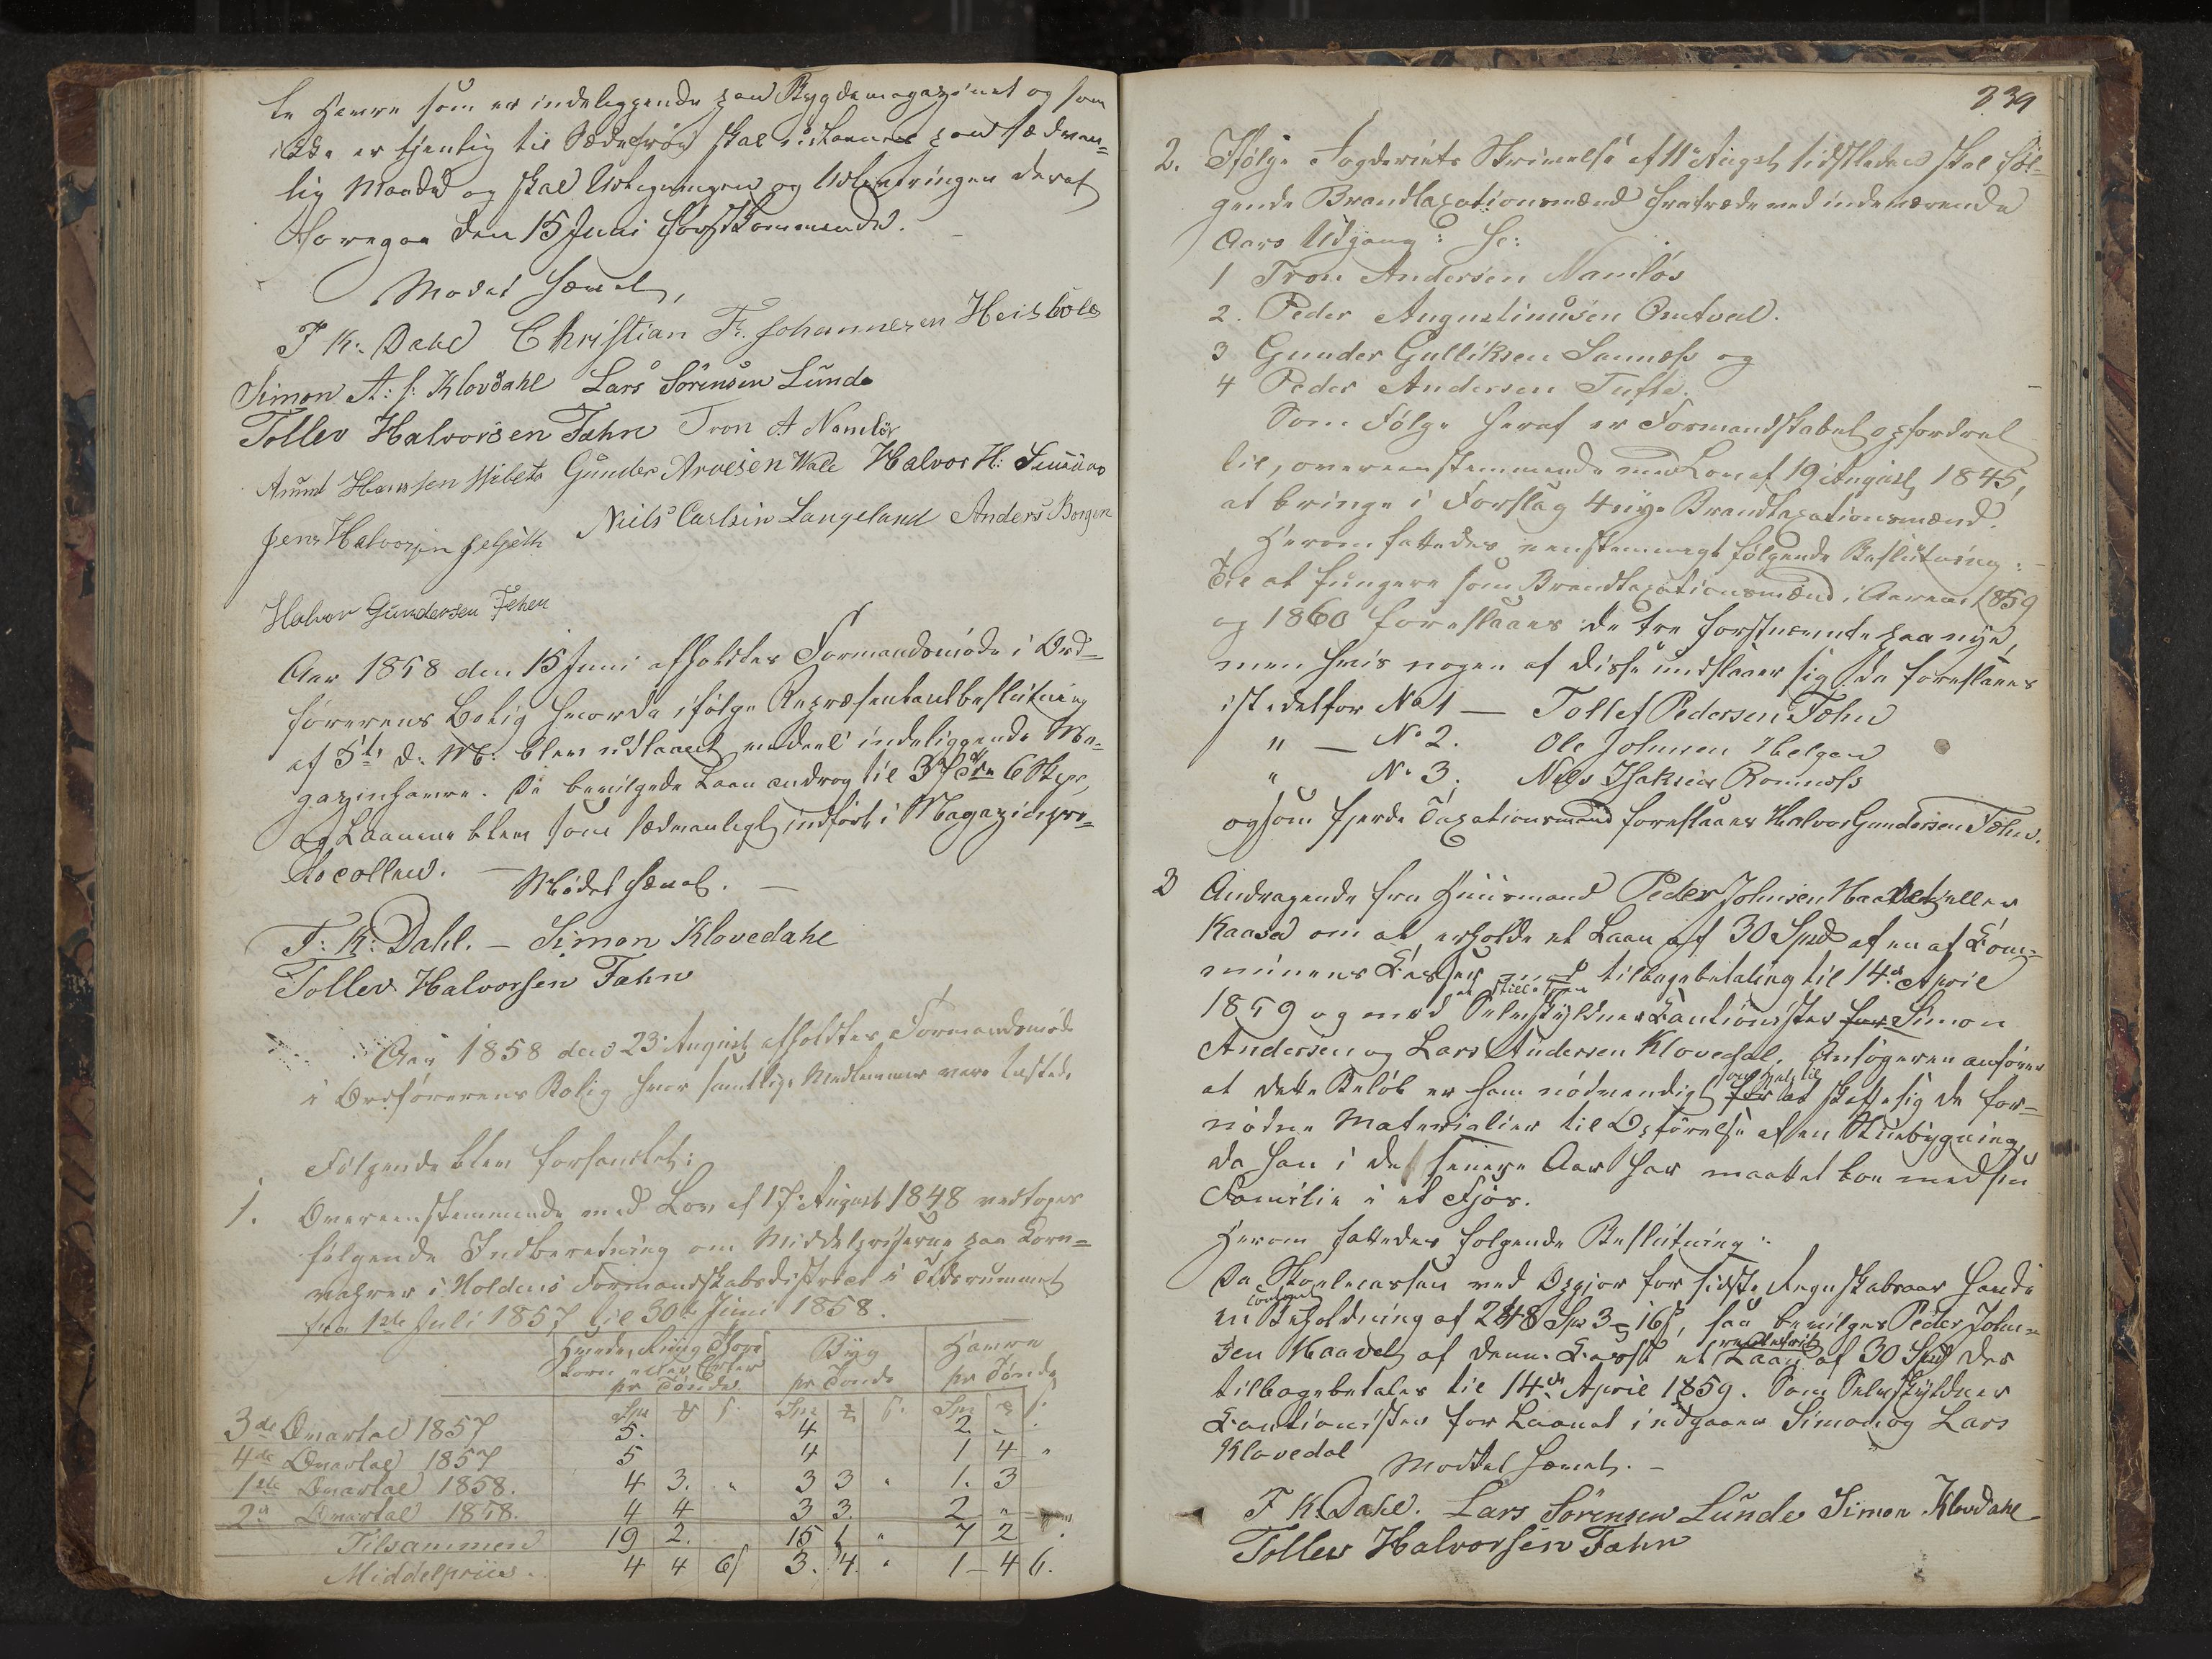 te Havre som er indeliggende paa Bygdemagazinet og som
ikke er tjenlig til Sædefrøe skal udlaanes paa sædvan=
lig Maade og skal Udtegningen og Udleveringen deraf
foregaa den 15 Juni førstkommende.
Mødet hævet,
F K. Dahl Christian Fr. Johannesen Heisholt
Simon A: S: Klovdahl Lars Sörensen Lunde
Tollev Halvorsen Fæhn Tron A Namløs
Hansen Gunder Arvesen Wale Halvor H:
Jens Halvorsen Niels Carlsen Langeland Anders Borgen
Halvor Gundersen Fehen
Aar 1858 den 15 Juni afholdtes Formandsmøde i Ord=
førerens Bolig hvorda ifølge Repræsentantbeslutning
af 5te d: M: blev udlaant endeel indeliggende Ma=
gazinhavre. De bevilgede Laan androg til 37 Tdr 6 Skpr,
og Laanene blev som sædvanligt indført i Magazinpro=
tocollen. — Mødet hævet. —
F: K: Dahl. — Simon Klovedahl
Tollev Halvorsen Fæhn
Aar 1858 den 23 August afholdtes Formandsmøde
i Ordførerens Bolig hvor samtlige Medlemmer vare tilstede
Følgende blev forhandlet:
1. Overeenstemmende med Lov af 17 August 1848 vedtoges
følgende Indberetning om Middelpriserne paa Korn=
vahrer i Holdens Formandskabsdistrict i Tidsrummet
fra 1ste Juli 1857 til 30te Juni 1858.
Hvede, Rug
korn eller Erter
pr Tønde Byg
pr Tønde Havre
pr Tønde
3de Qvartal 1857 5. 4 2
4de Qvartal 1857 5 4 1 4 "
1ste Qvartal 1858. 4 3. " 3 3 " 1. 3
2det Qvartal 1858. 4 4 3 3. 2 "
Tilsammen 19 2. 15 1 " 7 2
Middelpriis. 4 4 6 3. 4. " 1 - 4 6.
239
2. Ifølge Fogderiets Skrivelse af 11te August sidstleden skal føl=
gende Brandtaxationsmænd fratræde ved indeværende
Aars Udgang:
1 Tron Andersen Namløs
2. Peder Augustinusen Omtved.
3 Gunder Gulliksen Sannæs og
4 Peder Andersen Tufte.
Som Følge heraf er Formandskabet opfordret
til, overeenstemmende med Lov af 19 August 1845,
at bringe i Forslag 4 nye Brandtaxationsmænd.
Herom fattedes eenstemmigt følgende Beslutning:
Til at fungere som Brandtaxationsmænd i Aarene 1859
og 1860 foreslaaes de tre førstnævnte paa nye,
men hvis nogen af disse undslaaer sig da foreslaaes
istedetfor No 1 — Tollef Pedersen Fæhn
" — No 2. Ole Johnsen Helgen
" No 3. Niels Isaksen Romnæs
og som fjerde Taxationsmand foreslaaes Halvor Gundersen Fæhn.
3 Andragende fra Huusmand Peder Johnsen Haavet eller
Kaasa om at erholde et Laan af 30 Spd af en af Kom=
munens Kasser mod tilbagebetaling til 14de April
1859 og med at stille som Selvskyldner Cautionister for Simon
Andersen og Lars Andersen Klovedal. Ansøgeren anfører
at dette Beløb er ham nødvendigt for at skaffe sig de for=
nødne Materialier til Opførelse af en Stuebygning,
da han i de senere Aar har maattet boe med sin
Familie i et Fjøs.
Herom fattedes følgende Beslutning:
Da Skolecassen ved Opgjør for sidste Regnskabsaar havde
en contant Beholdning af 248 Spd 3 - 16 s, saa bevilges Peder John=
sen Haavet af denne Kasse et rentefrit Laan af 30 Spd der
tilbagebetales til 14de April 1859. Som Selvskyldner
Kautionister for Laanet indgaaer Simon og Lars
Klovedal Mødet hævet. —
F K. Dahl. Lars Sörensen Lunde Simon Klovdahl
Tollev Halvorsen Fæhn